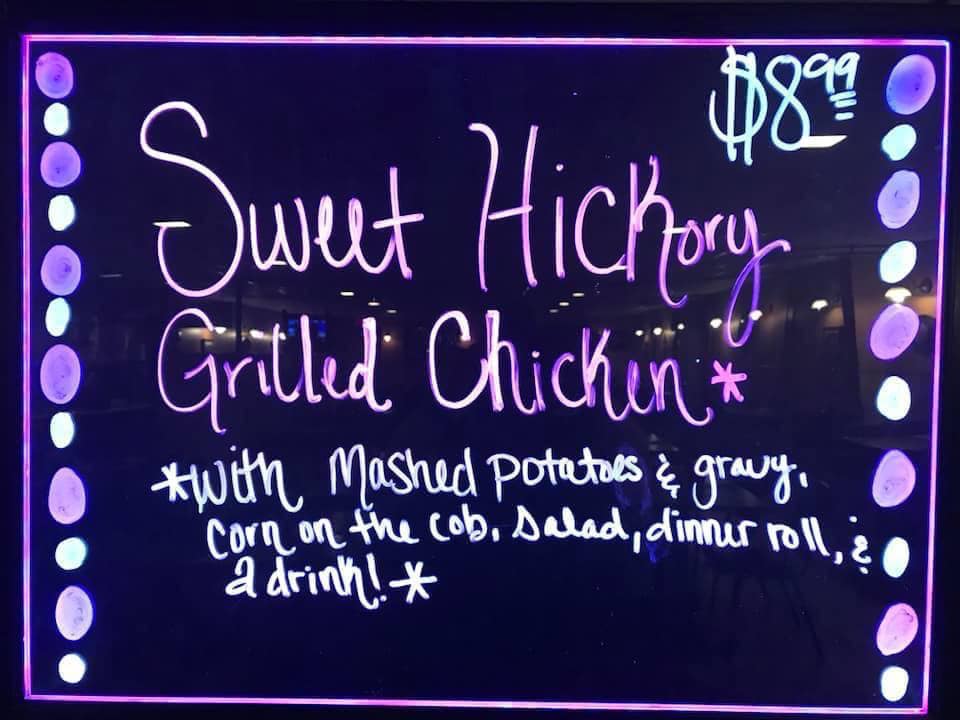 $8.99
Sweet Hickory
Grilled Chicken*
*with Mashed potatoes & gravy,
corn on the cob, salad, dinner roll, &
a drink!*